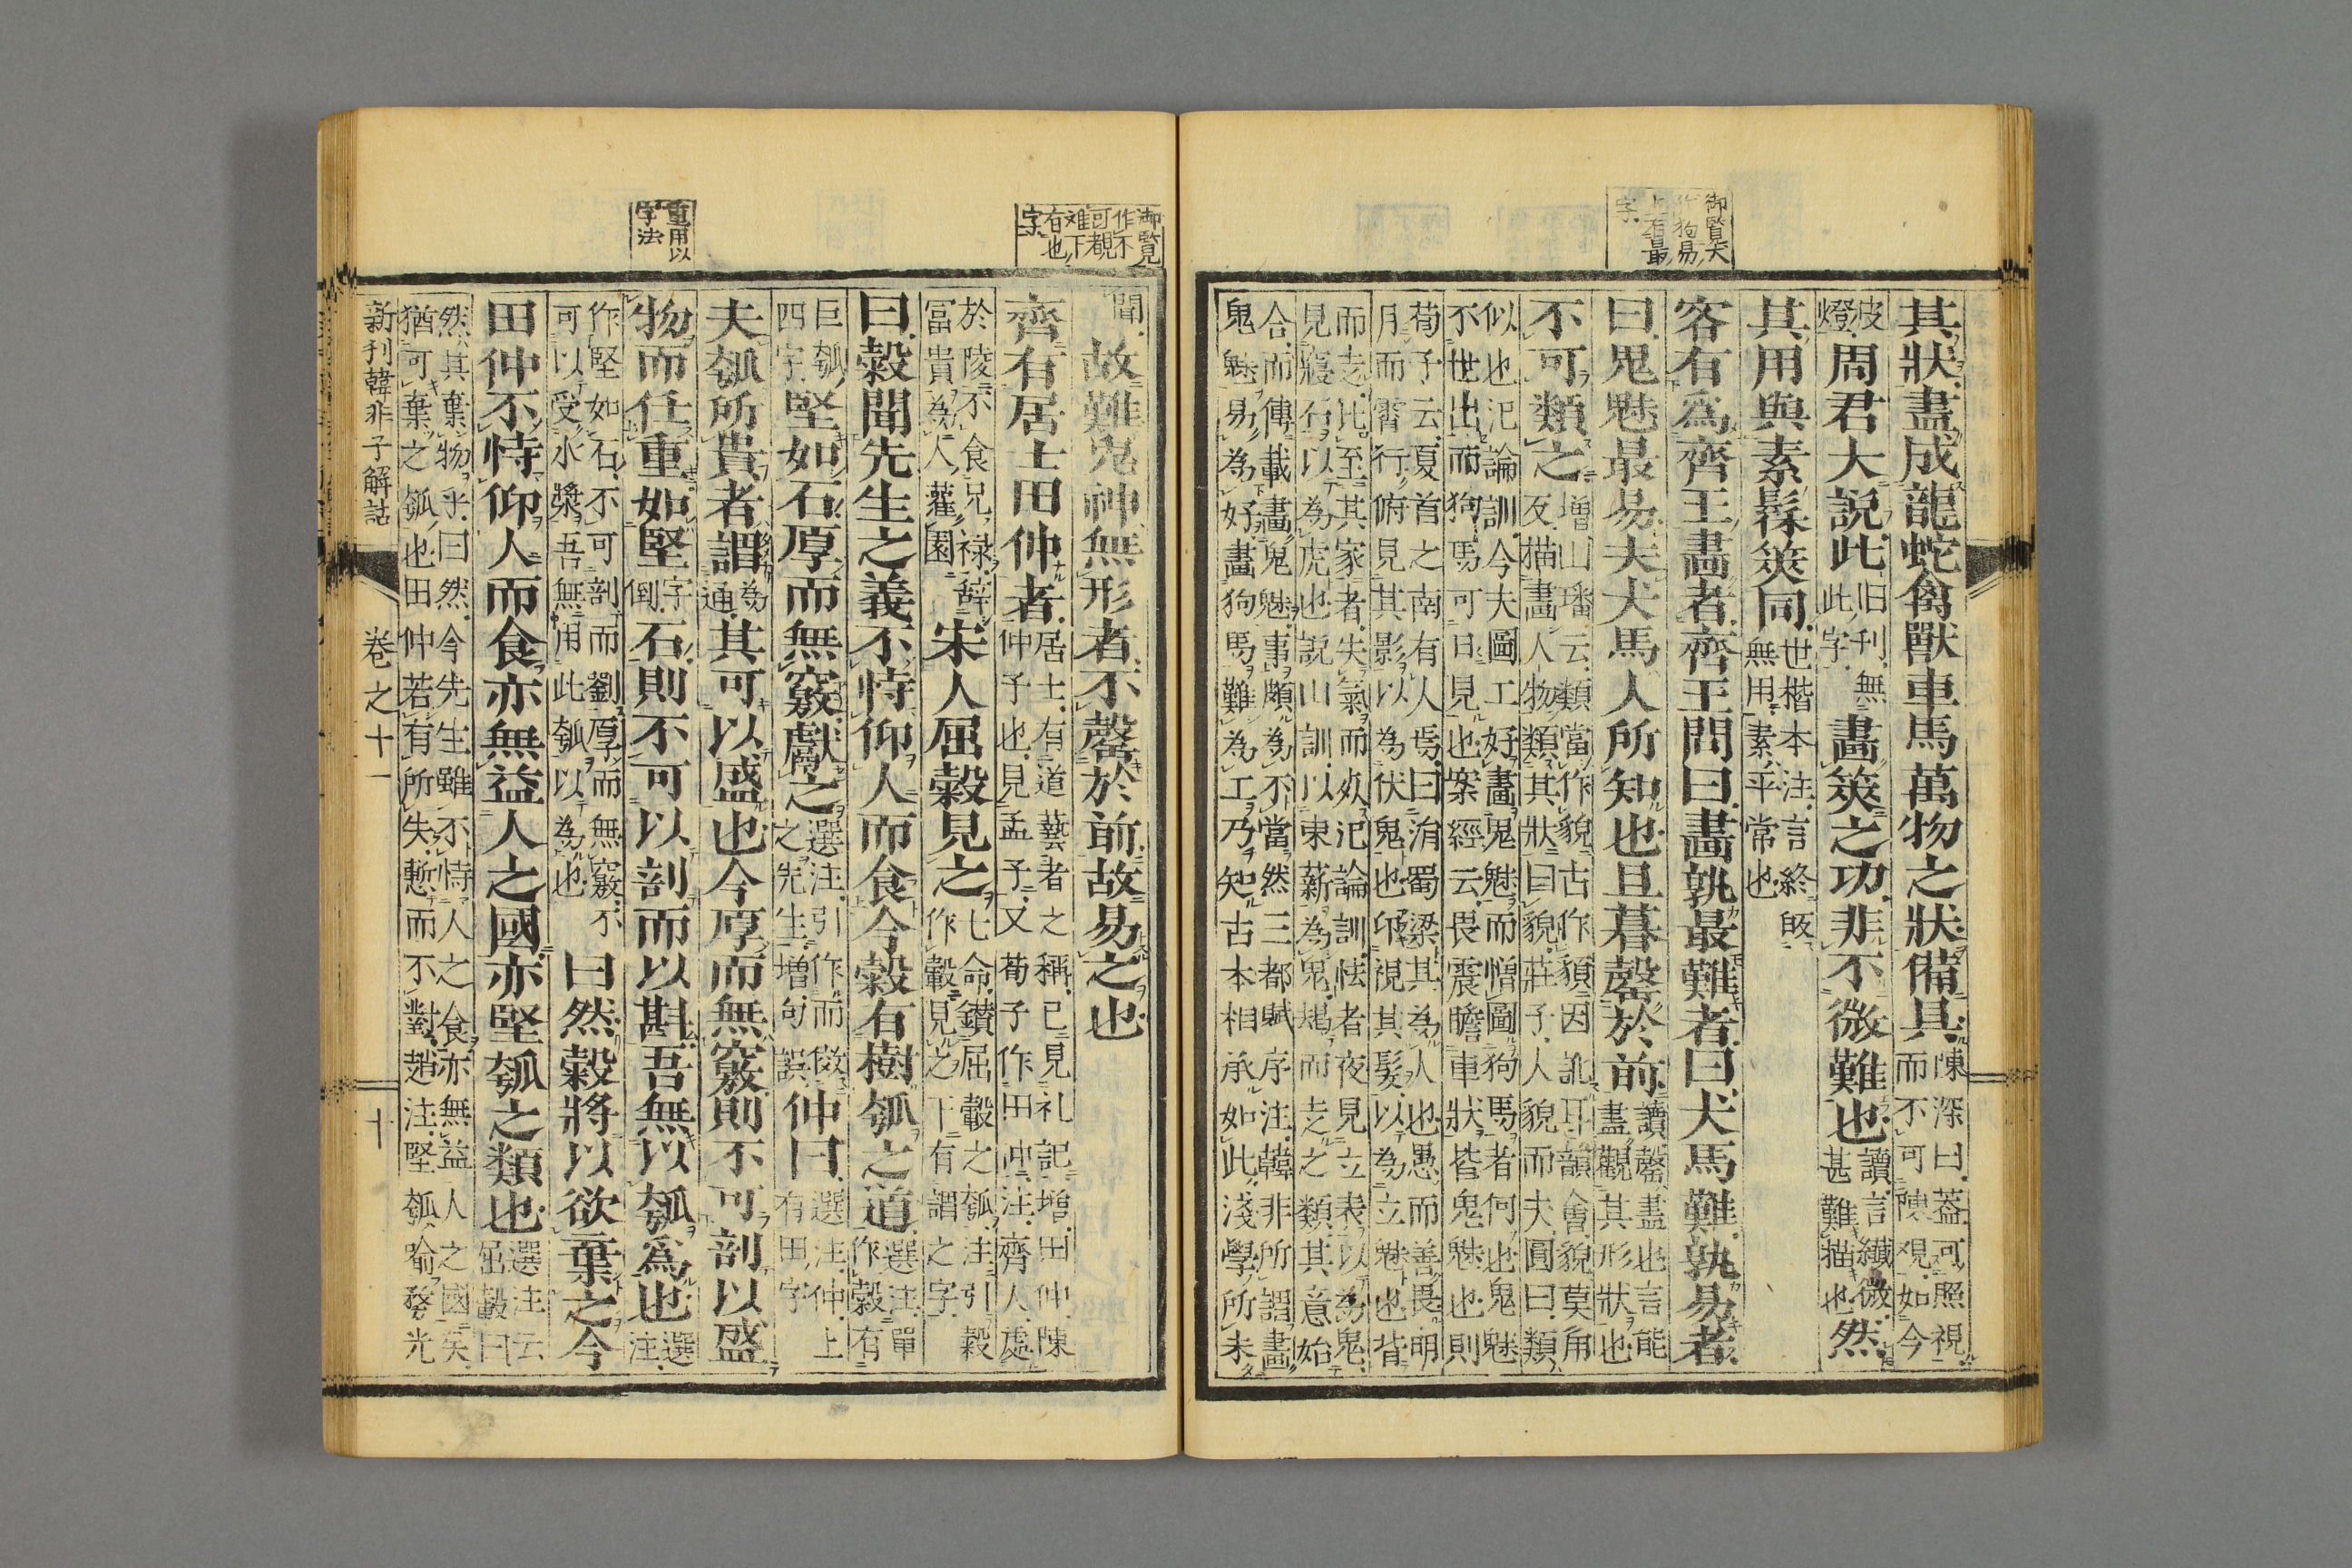 御覧犬
狗易
上有最
字
其狀盡成龍蛇禽獸車馬萬物之狀備具陳深曰蓋可照視而不可陳覌如今
皮燈周君大說此旧刊無此字畫筴之功非不微難也讀言纎微甚難描也然
其用與素髹筴同世楷本注言終皈無用素平常也
客有爲齊王畫者齊王問曰畫孰最難者曰犬馬難孰易者
曰鬼魅最易夫犬馬人所知也旦暮罄於前讀罄盡也言能盡觀其形狀也
不可類之増山璠云類當作貌古作䫉因訛耳韻會貌莫角反描畫人物類其狀曰貌莊子人貌而夫圓曰類
似也氾論訓今夫圖工好畫鬼魅而憎圖狗馬者何也鬼魅不世出而狗馬可日見也案經云畏震瞻車狀皆鬼魅也則
荀子云夏首之南有人焉曰涓蜀梁其為人也愚而善畏明月而宵行俯見其影以為伏鬼也卬視其髮以為立魅也背
而走比至其家者失氣而死氾論訓怯者夜見立表以為鬼見寢石以為虎也説山訓以束薪為鬼朅而走之類其意始
合而傳載畫鬼魅事頗為不當然三都賦序注韓非所謂畫鬼魅易為好畫狗馬難為工乃知古本相承如此淺學所未
御覧
作不
可覩
难下
有也
字
重用以
字法
聞故難鬼神無形者不罄於前故易之也
齊有居士田仲者居士有道藝者之稱已見礼記増田仲陳仲子也見孟子又荀子作田仲注齊人處
於陵不食兄禄辞冨貴為人灌園宋人屈穀見之七命鑚屈轂之瓠注引穀作轂見之下有謂之字
曰穀聞先生之義不恃仰人而食今穀有樹瓠之道選注單作穀有
巨瓠四字堅如石厚而無竅獻之選注引作而效之先生増句誤仲曰選注仲上有田字
夫瓠所貴者謂為通其可以盛也今厚而無竅則不可剖以盛
物而任重如堅字倒石則不可以剖而以斟吾無以瓠爲也選注
作堅如石不可剖而劉厚而無竅不可以受水漿吾無用此瓠以為也曰然穀將以欲棄之今
田仲不恃仰人而食亦無益人之國亦堅瓠之類也選注云屈轂曰
然其棄物乎曰然今先生雖不恃人之食亦無益人之國矣猶可棄之瓠也田仲若有所失慙而不對趙注堅瓠喻務光
新刊韓非子解詁
卷之十一
十